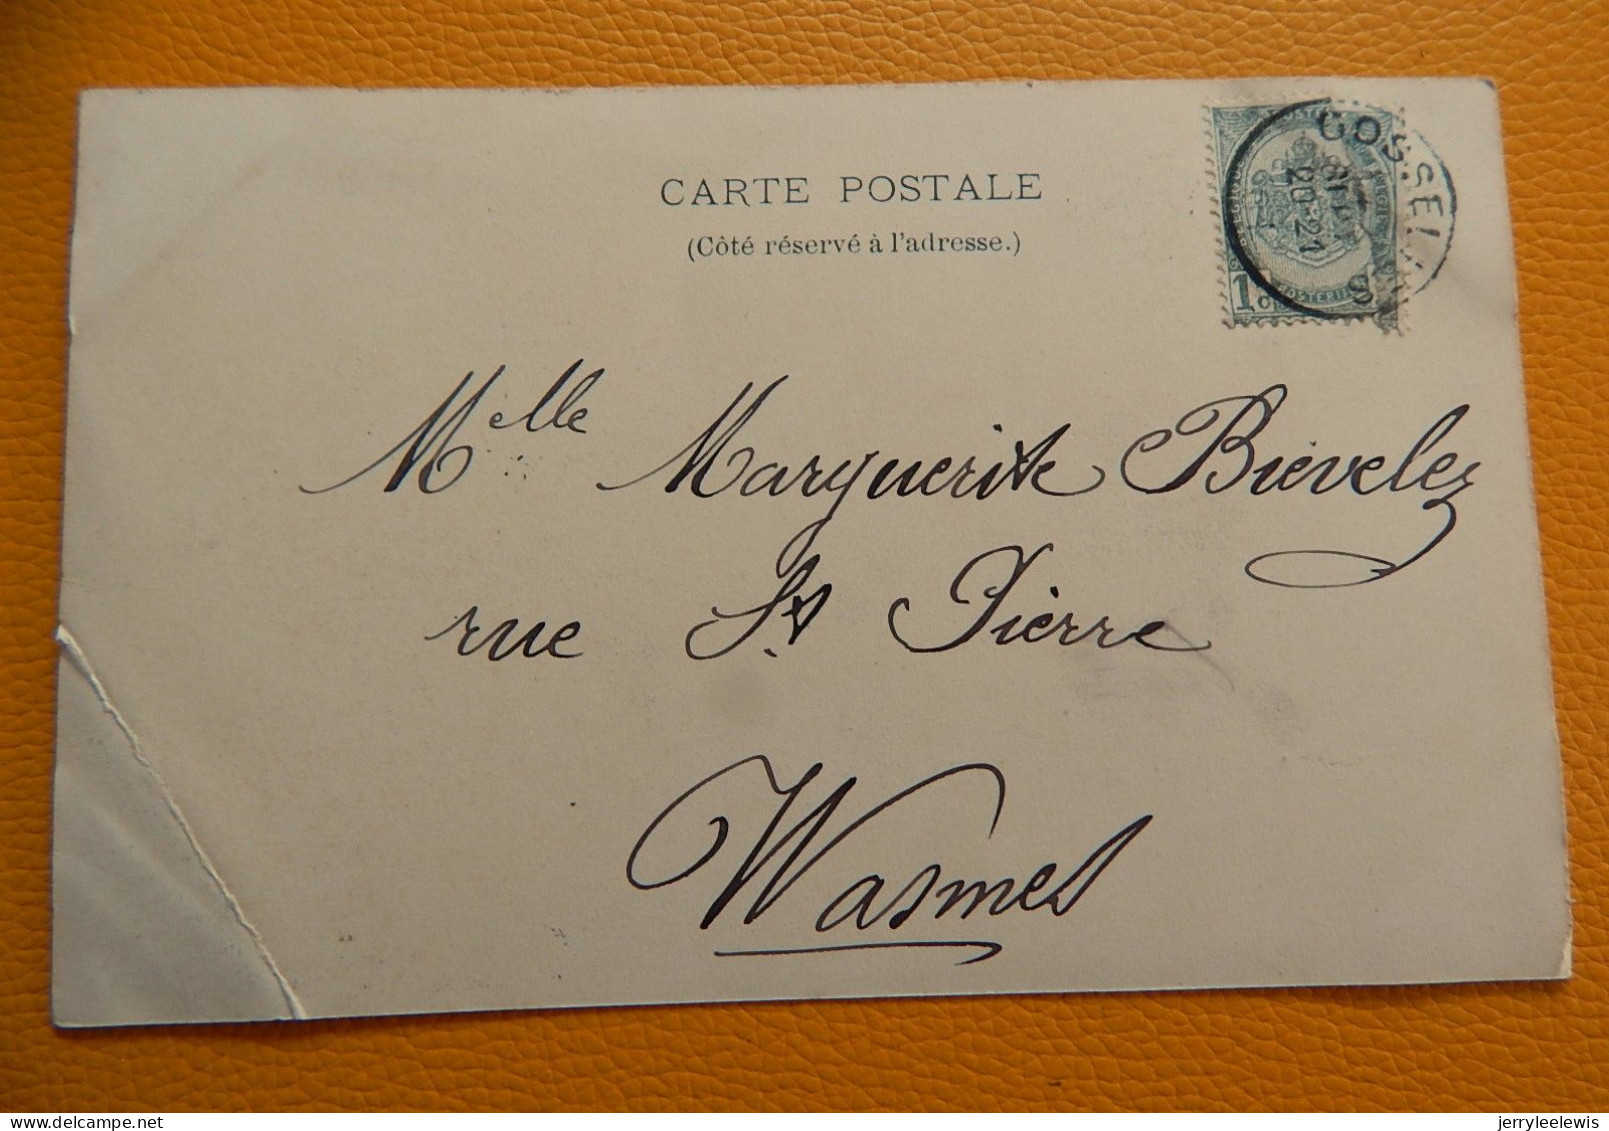 CARTE POSTALE
(Côté réservé à l'adresse.)
GOSSELIES
20-21
1c
Melle Marguerite Biévelez
rue St Pierre
Wasmes
© delcampe.net
jerryleelewis